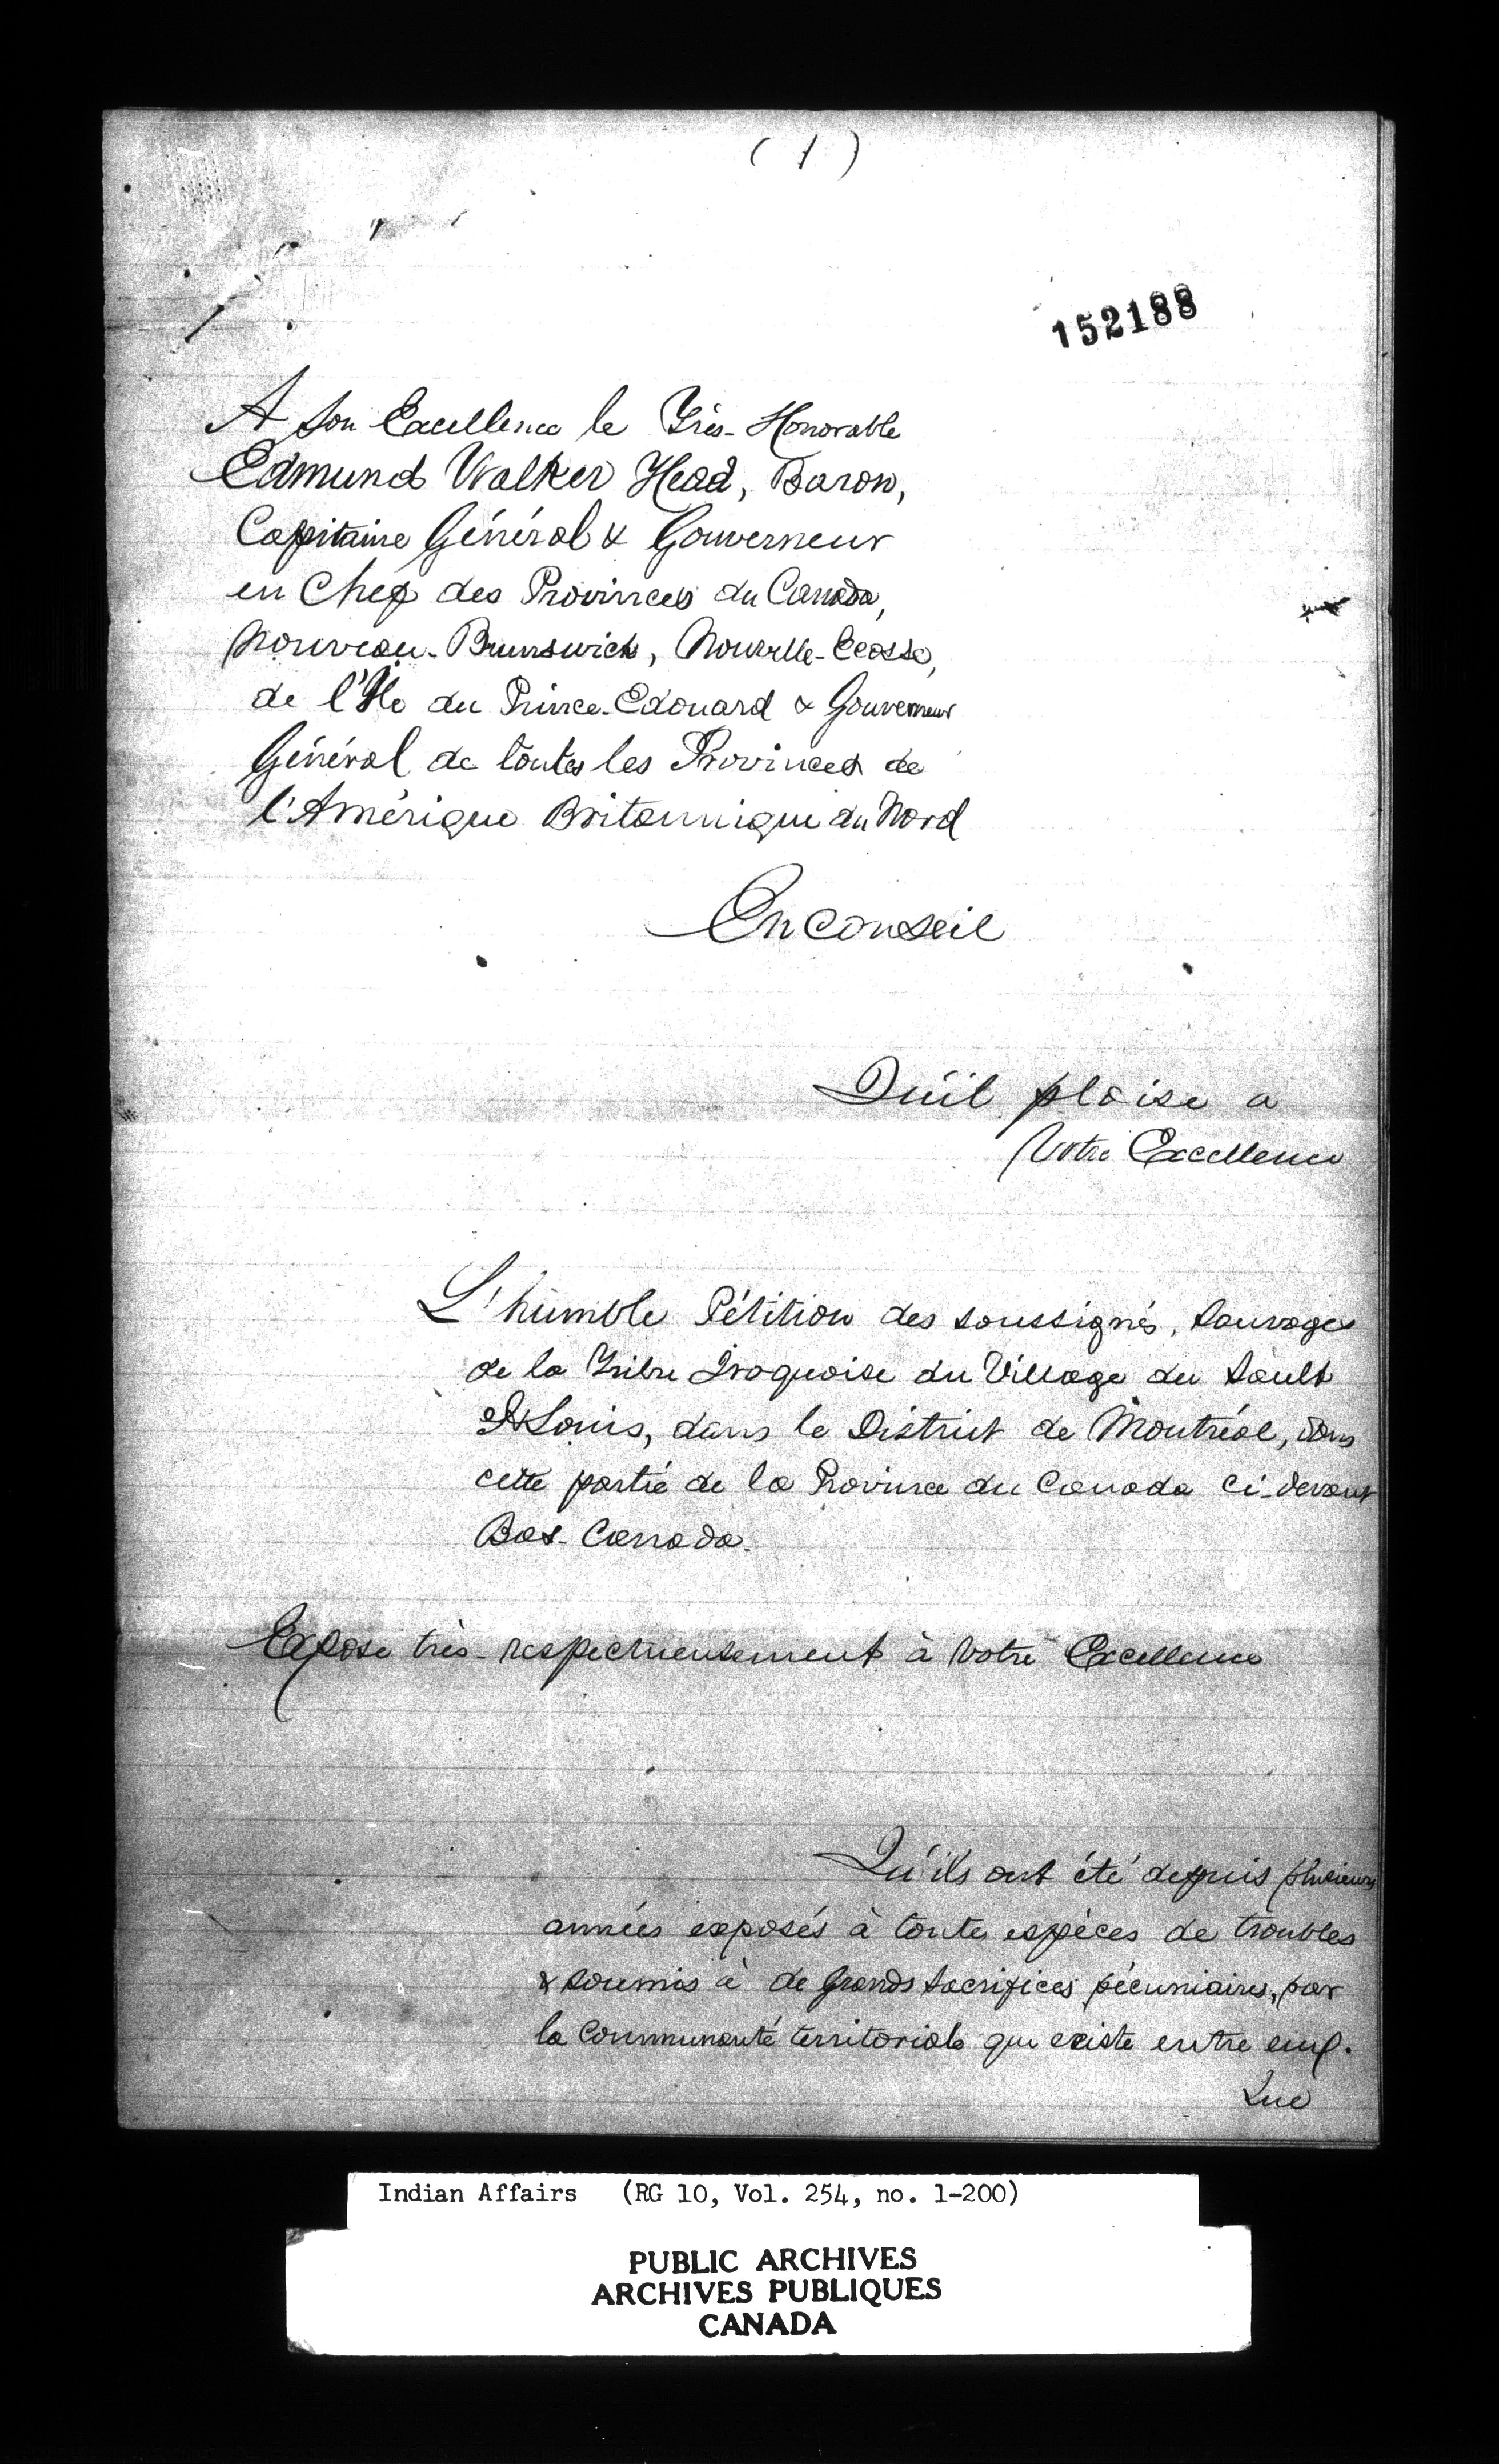 ( 1 )
152188
A Son Excellence le Très-Honorable
Edmund Walker Head, Baron,
Capitaine Général & Gouverneur
en Chef des Provinces du Canada,
Nouveau-Brunswick, Nouvelle-Ecosse,
de l'Ile du Prince-Edouard & Gouverneur
Général de toutes les Provinces de
l'Amérique Britannique du Nord
En Conseil
Qu'il plaise a
Votre Excellence
L'humble Pétition des soussignés, Sauvages
de la Tribu Iroquoise du Village du Sault
St Louis, dans le District de Montréal, dans
cette partie de la Province du Canada ci-devant
Bas-Canada.
Expose très-respectueusement à Votre Excellence
Qu'ils ont été depuis plusieurs
années exposés à toute espèces de troubles
& soumis à de grands sacrifices pécuniaires, par
la Communauté territoriale qui existe entre eux.
Que
Indian Affairs (RG 10, Vol. 254, no. 1-200)
PUBLIC ARCHIVES
ARCHIVES PUBLIQUES
CANADA